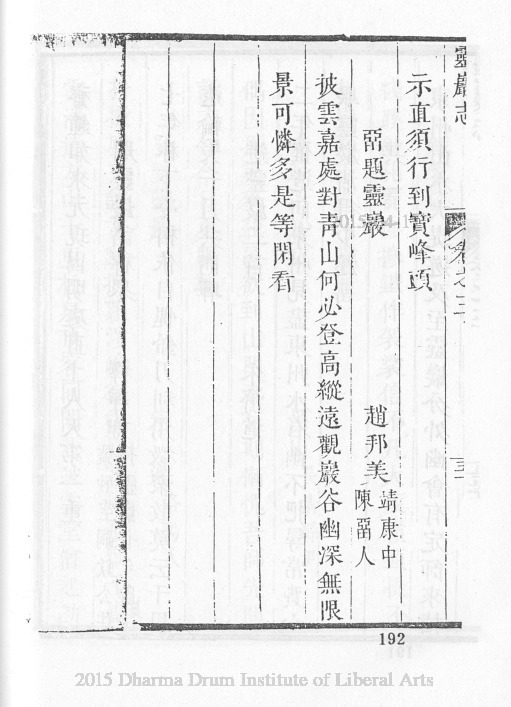 靈巖志 卷之三 五
示直須行到寶峰頂
畱題靈巖 趙邦美 靖康中
陳畱人
披雲嘉處對靑山何必登高縱遠觀巖谷幽深無限
景可憐多是等閑看
192
2015 Dharma Drum Institute of Liberal Arts